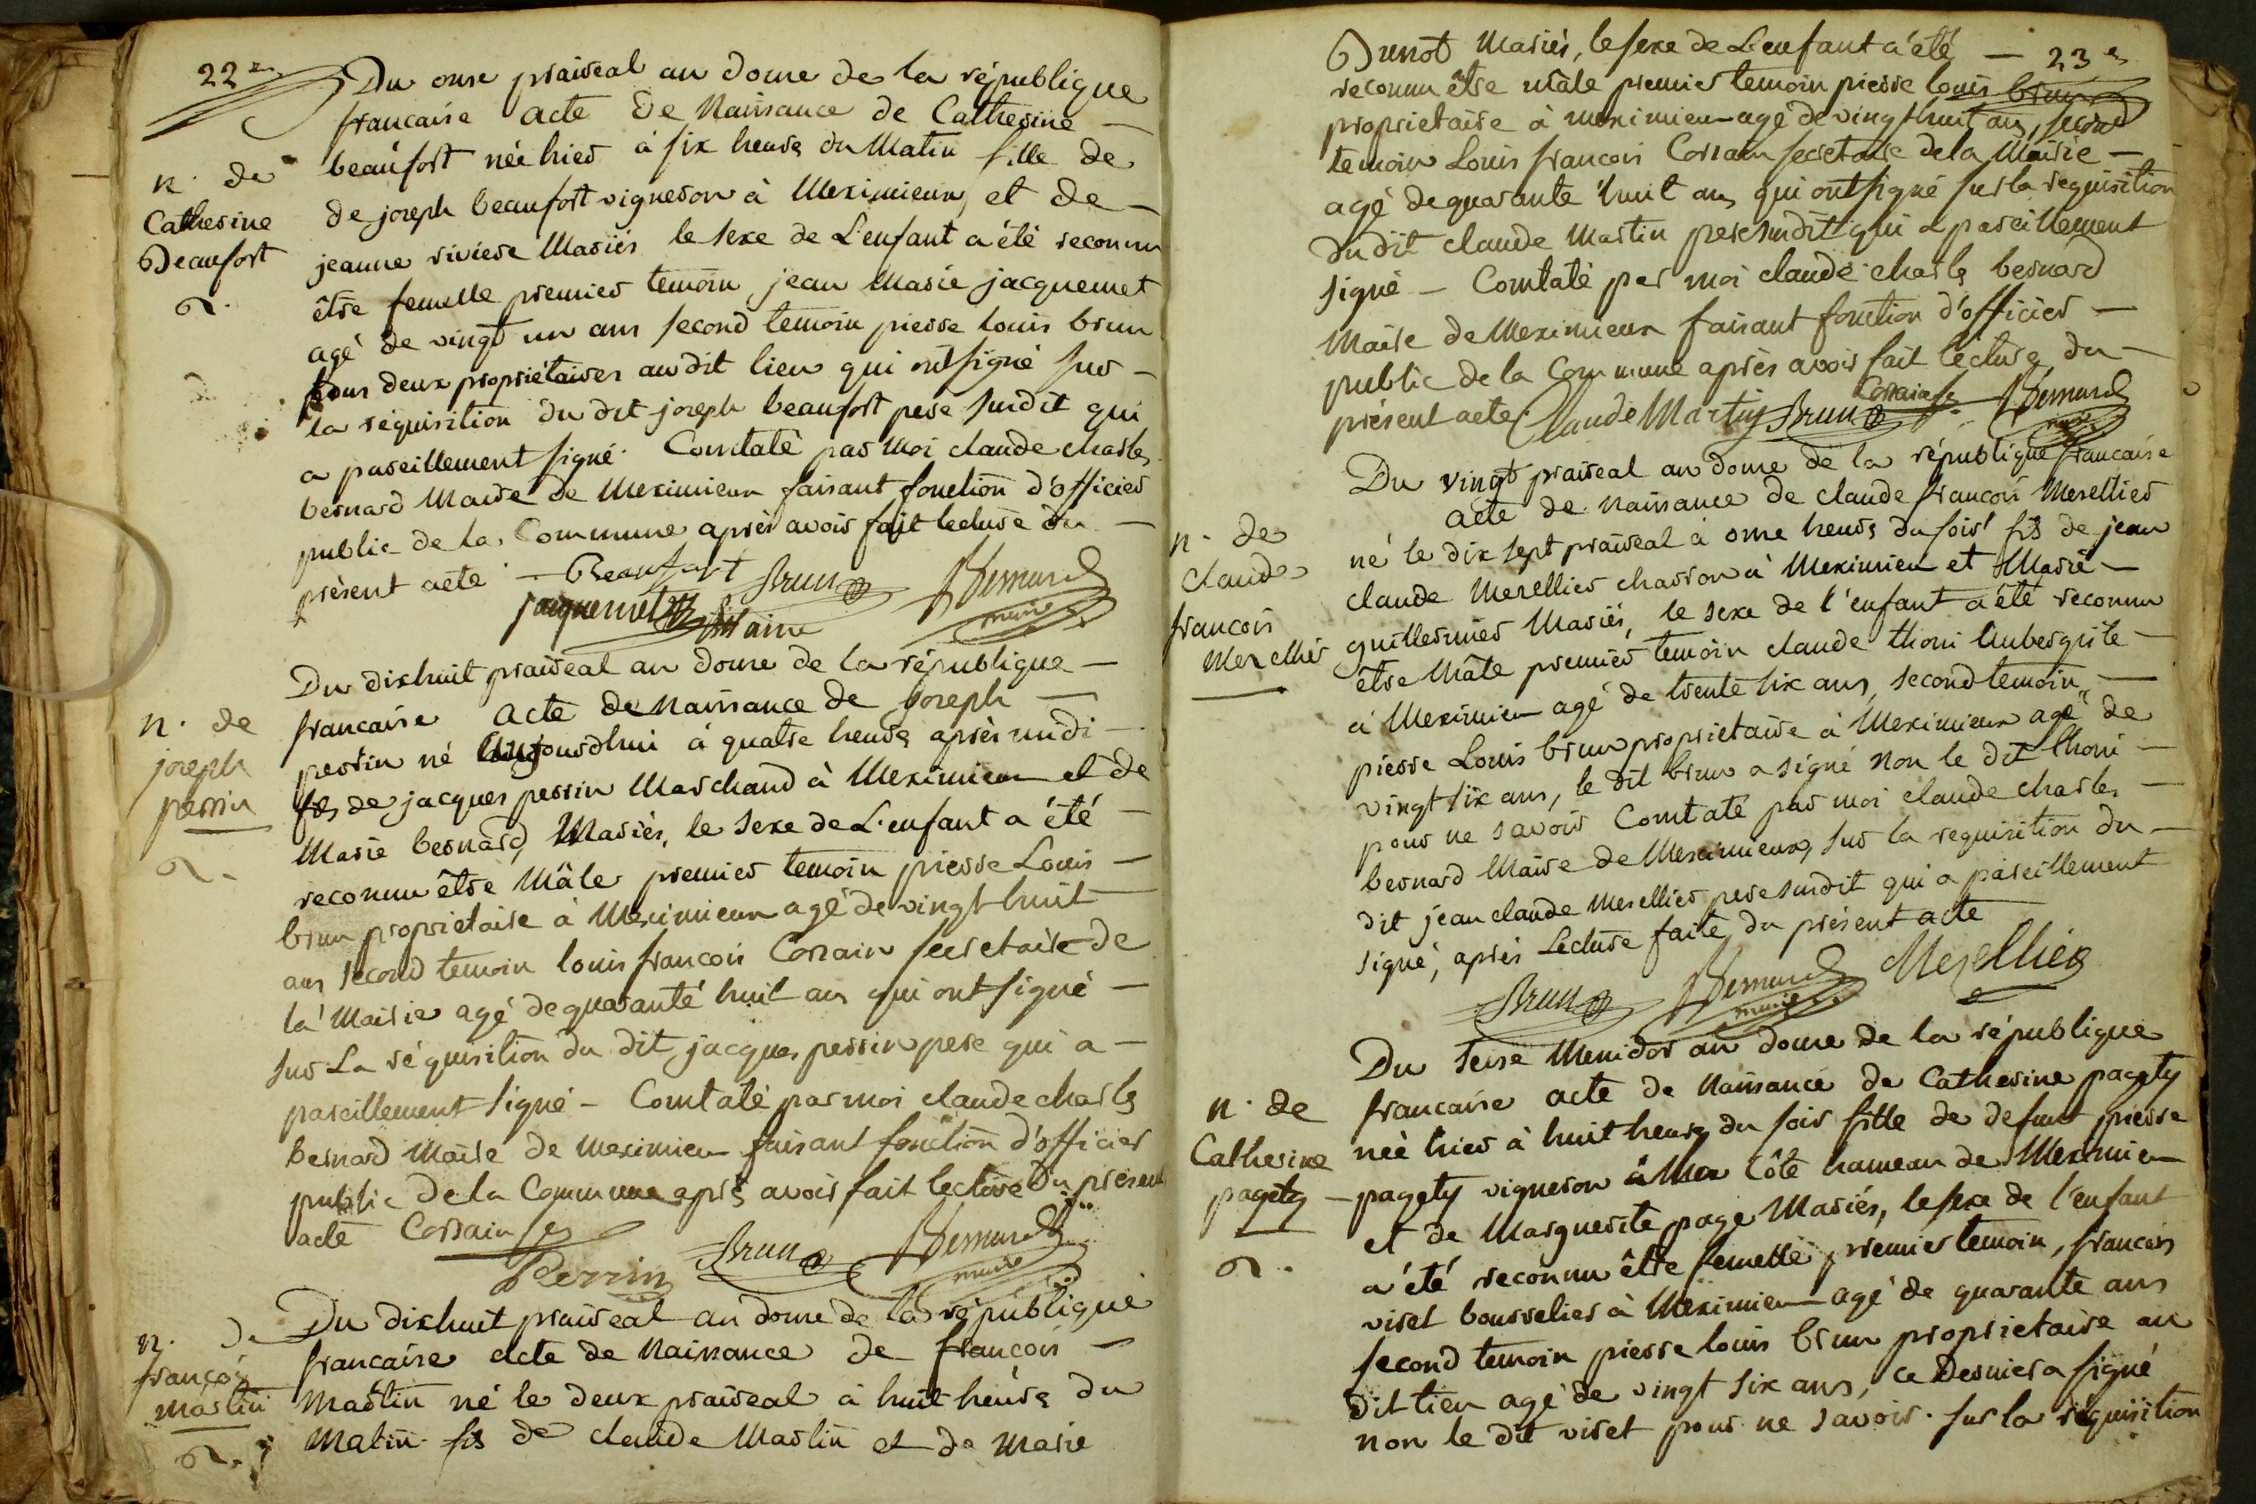 22e
Du onse praireal an douse de la république
francaise acte de Naissance de Catherine
n. de
Catherine
Beaufort
beaufort née hier à six heures du Matin fille de
de joseph beaufort vigneron à Meximieux, et de
jeanne riviere Mariés le sexe de L'enfant a été reconnu
être femelle premier temoin jean Marie jacquemet
agé de vingt un ans second temoin pierre louis brun
tous deux propriétaires au dit lieu qui ont signé sur
la réquisition du dit joseph beaufort pere susdit qui
a pareillement signé. Constaté par moi claude charles
bernard Maire de Meximieux faisant fonction d'officier
public de la Commune après avoir fait lecture du
présent acte Beaufort Brun Bernard
jacquemet maire
Du dixhuit praireal an douse de la république
n. de
joseph
perrin
francaise Acte de naissance de joseph
perrin né Aujourdhui à quatre heures après midi
fils de jacques perrin Marchand à Meximieux et de
Marie bernard, Mariés, le sexe de L'enfant a été
reconnu être Mâle premier temoin pierre Louis
brun proprietaire à Meximieux agé de vingt huit
ans second temoin louis francois Corrain secretaire de
la Mairie agé de quarante huit ans qui ont signé
sur La réquisition du dit jacques perrin pere qui a
pareillement signé - Constaté par moi claude charles
bernard Maire de meximieux faisant fonction d'officier
public de la Commune après avoir fait lecture du présent
acte Corrain
Perrin Brun Bernard
maire
n. de
françois
martin
Du dixhuit praireal an douse de la république
francaise acte de Naissance de francois
Martin né le deux praireal à huit heures du
Matin fils de claude Martin et de Marie
23e
Mariés, le sexe de L'enfant a été
reconnu être mâle premier temoin pierre louis brun
proprietaire à meximieux agé de vingt huit ans, second
temoin Louis francois Corrain secretaire de la Mairie
agé de quarante huit ans qui ont signé sur la requisition
du dit claude Martin pere susdit qui a pareillement
signé - Constaté par moi claude charles bernard
Maire de Meximieux faisant fonction d'officier
public de la Commune après avoir fait lecture du
présent acte Claude Martin Brun Corrain Bernard
maire
Du vingt praireal an douse de la république francaise
n. de
claude
francois
Merellier
acte de naissance de claude francois Merellier
né le dix sept praireal à onse heures du soir fils de jean
claude Merellier charron à Meximieux et Marie
guillermier Mariés, le sexe de l'enfant a été reconnu
être Mâle premier temoin claude thoni Aubergiste
à Meximieux agé de trente six ans, second temoin
pierre Louis brun proprietaire à Meximieux agé de
vingt six ans, le dit brun a signé non le dit thoni
pour ne savoir Constaté par moi claude charles
bernard Maire de Meximieux, sur la requisition du
dit jean claude Merellier pere susdit qui a pareillement
signé, après Lecture faite du présent acte
Brun Bernard Merellier
maire
Du seise Messidor an douse de la république
n. de
Catherine
pagety
francaise acte de Naissance de Catherine pagety
née hier à huit heures du soir fille de defunt pierre
pagety vigneron à Côte hameau de Meximieux
et de Marguerite page Mariés, le sexe de l'enfant
a été reconnu être femelle premier temoin, francois
viret bourrelier à Meximieux agé de quarante ans
second temoin pierre louis brun proprietaire au
dit lieu agé de vingt six ans, ce Dernier a signé
non le dit viret pour ne savoir. sur la réquisition